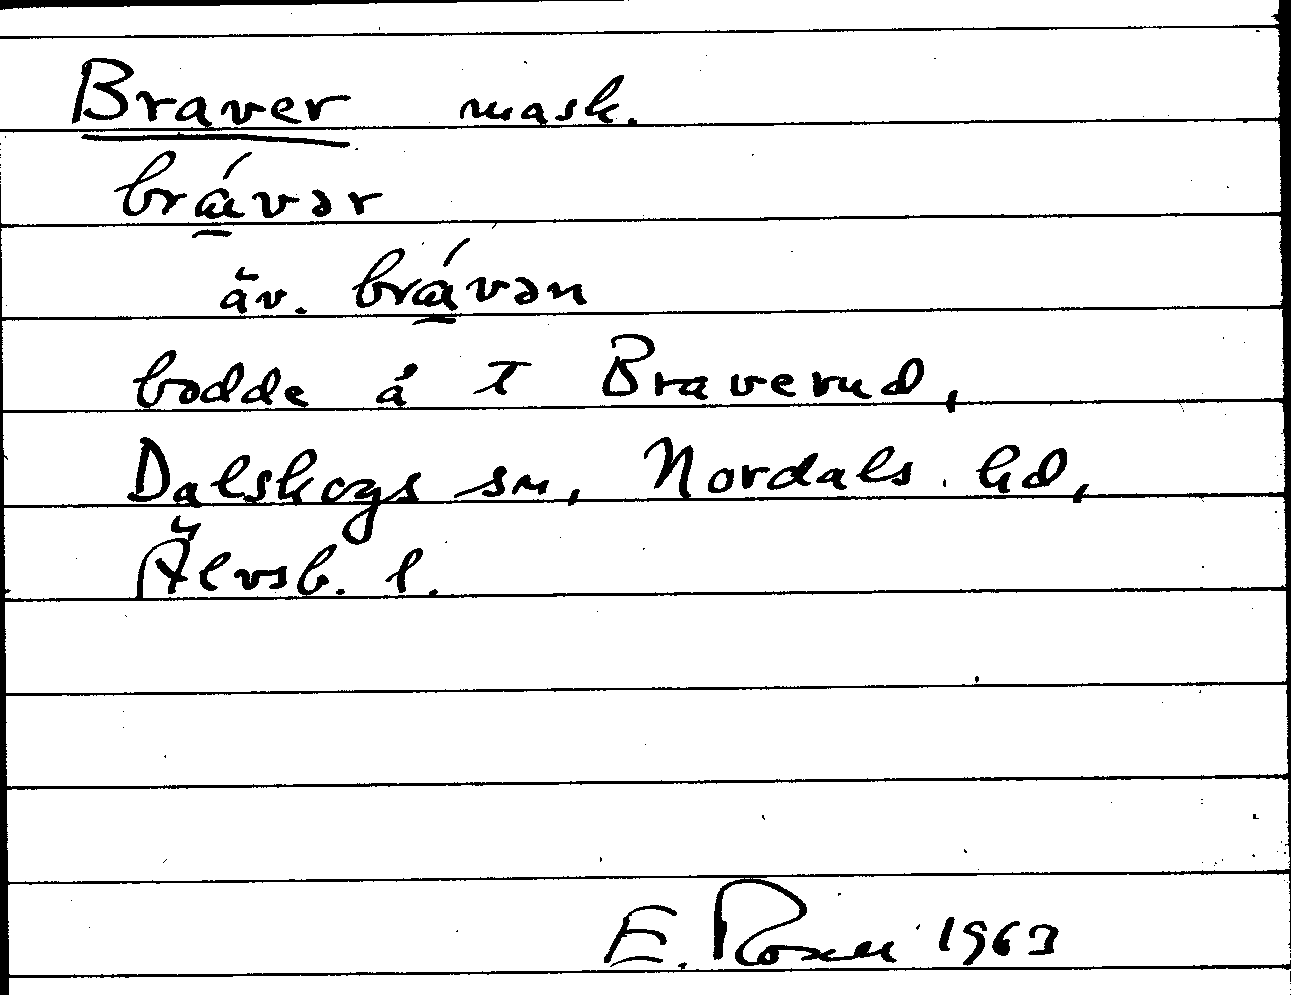 Braver mask.
brá̱vər
äv. brá̱vən
bodde å T Braverud,
Dalskogs sn, Nordals hd,
Älvsb. l.
E. 1963